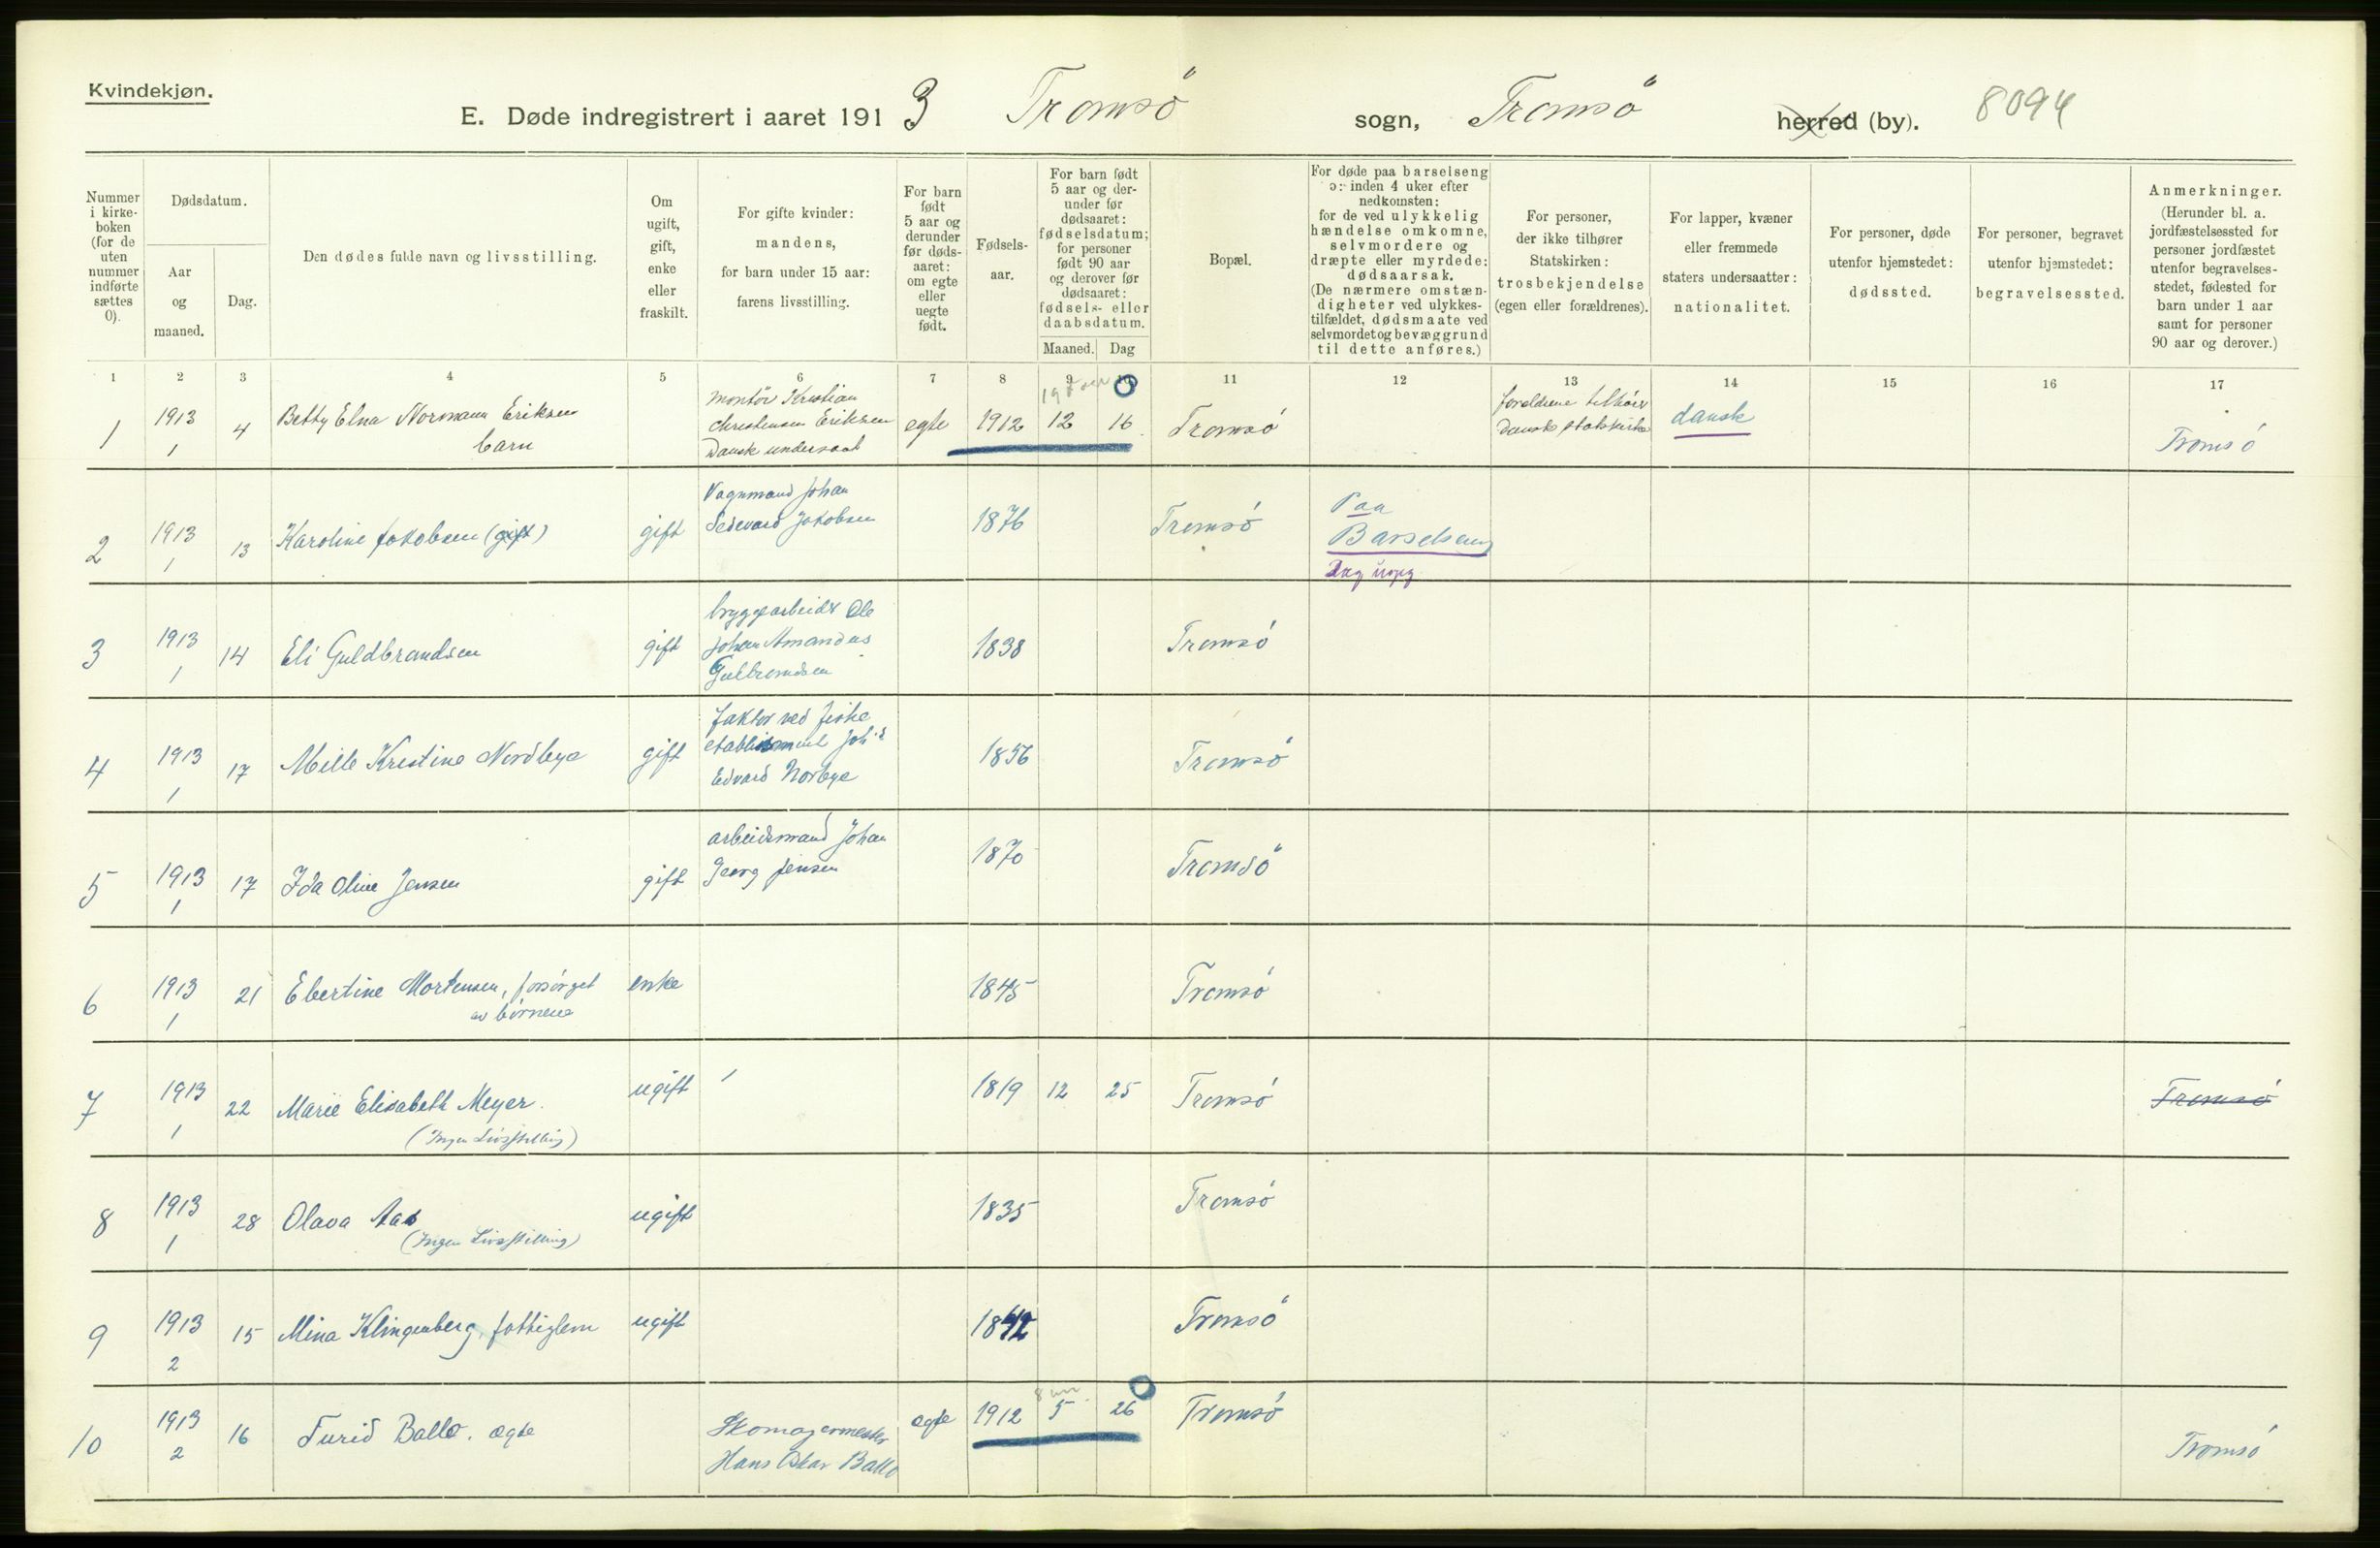 Kvindekjøn.
E. Døde indregistrert i aaret 1913 Tromsö sogn, Tromsö herred (by). 8094
Nummer i kirke-boken (for de uten nummer indførte sættes 0).
Dødsdatum.
Aar og maaned.
Dag.
Den dødes fulde navn og livsstilling.
Om ugift, gift, enke eller fraskilt.
For gifte kvinder: mandens, for barn under 15 aar: farens livsstilling.
For barn født 5 aar og derunder før døds-aaret: om egte eller uegte født.
Fødsels-aar.
For barn født 5 aar og der-under før dødsaaret: fødselsdatum; for personer født 90 aar og derover før dødsaaret: fødsels- eller daabsdatum.
Maaned. Dag
Bopæl.
For døde paa barselseng ɔ: inden 4 uker efter nedkomsten: for de ved ulykkelig hændelse omkomne, selvmordere og dræpte eller myrdede: dødsaarsak. (De nærmere omstæn-digheter ved ulykkes-tilfældet, dødsmaate ved selvmordet og bevæggrund til dette anføres.)
For personer, der ikke tilhører Statskirken: trosbekjendelse (egen eller forældrenes).
For lapper, kvæner eller fremmede staters undersaatter: nationalitet.
For personer, døde utenfor hjemstedet: dødssted.
For personer, begravet utenfor hjemstedet: begravelsessted.
Anmerkninger. (Herunder bl. a. jordfæstelsessted for personer jordfæstet utenfor begravelses-stedet, fødested for barn under 1 aar samt for personer 90 aar og derover.)
1 2 3 4 5 6 7 8 9 10 11 12 13 14 15 16 17
1 1913 1 4 Betty Elna Normann Eriksen barn montör Kristian Christensen Eriksen Dansk undersaat egte 1912 12 16 Tromsó forældrene tilhører Dansk statskirke dansk Tromsó
2 1913 1 13 Karoline Jakobsen (gift) gift Vognmand Johan Jakobsen 1876 Tromsó Paa Barselseng
3 1913 1 14 Eli Guldbrandsen gift bryggearbeider Ole Johan Amandus Gulbrandsen 1838 Tromsó
4 1913 1 17 Mille Kristine Nordbye gift faktor ved fiske etablisment Joh's Edvard Norbye 1856 Tromsö
5 1913 1 17 Ida Oline Jensen gift arbeidsmand Johan Georg Jensen 1870 Tromsö
6 1913 1 21 Ebertine Mortensen, forsörget av börnene enke 1845 Tromsó
7 1913 1 22 Marie Elisabeth Meyer. (Ingen Livsstilling) ugift 1819 12 25 Tromsó Tromsó
8 1913 1 28 Olava Aas (Ingen Livsstilling) ugift 1835 Tromsó
9 1913 2 15 Mina Klingenberg, fattiglem ugift 1842 Tromsö
10 1913 2 16 Turid Ballo. ægte Skomagermester Hans Oskar Ballo egte 1912 5 26 Tromsó Tromsó